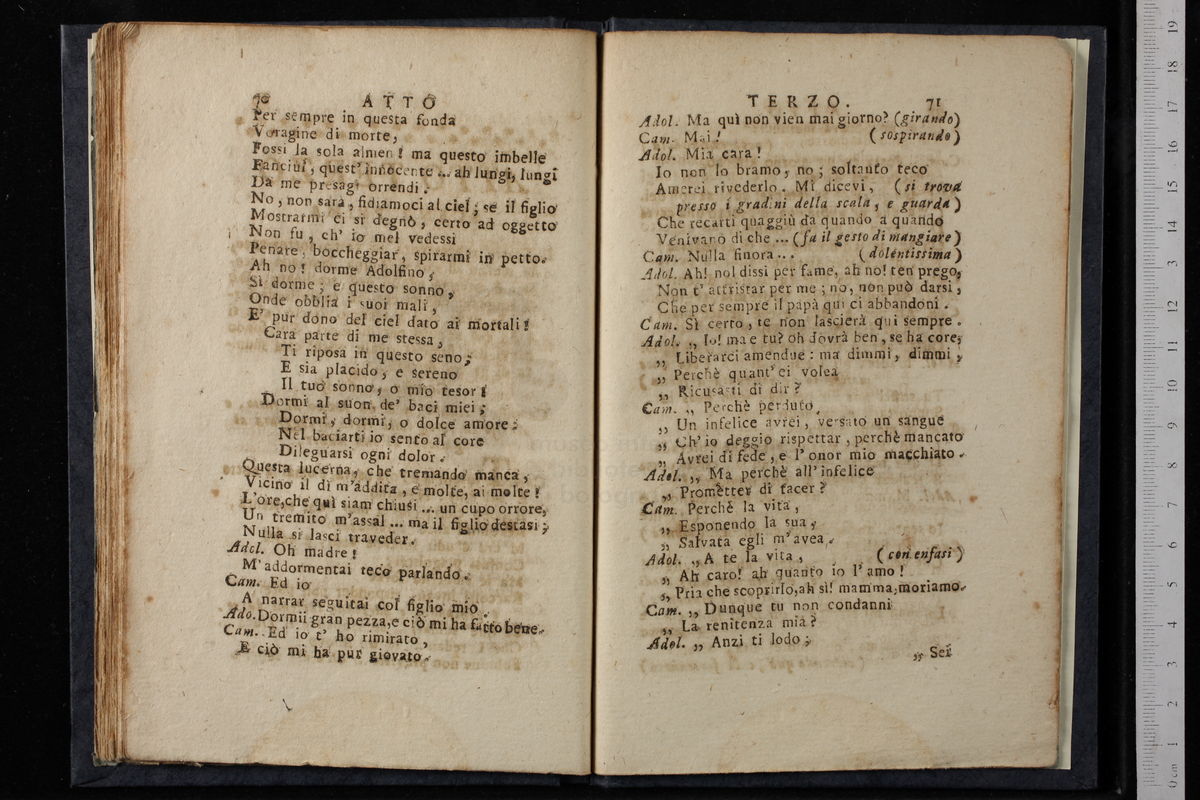 70 ATTO
Per sempre in questa fonda
Voragine di morte,
Fossi la sola almen! ma questo imbelle
Fanciul, quest' innocente ... ah lungi, lungi
Da me presagi orrendi.
No, non sarà, fidiamoci al ciel; se il figlio
Mostrarmi ei si degnò, certo ad oggetto
Non fu, ch' io mel vedessi
Penare, boccheggiar, spirarmi in petto.
Ah no! dorme Adolfino,
Sì dorme; e questo sonno,
Onde obblia i suoi mali,
E' pur dono del ciel dato ai mortali!
Cara parte di me stessa,
Ti riposa in questo seno;
E sia placido, e sereno
Il tuo sonno, o mio tesor!
Dormi al suon de' baci miei;
Dormi, dormi, o dolce amore:
Nel baciarti io sento al core
Dileguarsi ogni dolor.
Questa lucerna, che tremando manca,
Vicino il dì m'addita, e molte, ai molte!
L'ore, che quì siam chiusi ... un cupo orrore,
Un tremito m'assal ... ma il figlio destasi;
Nulla si lasci traveder.
Adol. Oh madre!
M'addormentai teco parlando.
Cam. Ed io
A narrar seguitai col figlio mio.
Ado. Dormii gran pezza, e ciò mi ha fatto bene.
Cam. Ed io t' ho rimirato,
E ciò mi ha pur giovato.
TERZO. 71
Adol. Ma quì non vien mai giorno? (girando)
Cam. Mai! (sospirando)
Adol. Mia cara!
Io non lo bramo, no; soltanto teco
Amerei rivederlo. Mi dicevi, (si trova
presso i gradini della scala, e guarda)
Che recarti quaggiù da quando a quando
Venivano di che ... (fa il gesto di mangiare)
Cam. Nulla finora ... (dolentissima)
Adol. Ah! nol dissi per fame, ah no! ten prego,
Non t' attristar per me; no, non può darsi,
Che per sempre il papà qui ci abbandoni.
Cam. Sì certo, te non lascierà qui sempre.
Adol. „ Io! ma e tu? oh dovrà ben, se ha core,
„ Liberarci amendue: ma dimmi, dimmi,
„ Perchè quant' ei volea
„ Ricusasti di dir?
Cam. „ Perchè perduto
„ Un infelice avrei, versato un sangue
„ Ch' io deggio rispettar, perchè mancato
„ Avrei di fede, e l' onor mio macchiato.
Adol. „ Ma perchè all' infelice
„ Prometter di tacer?
Cam. Perchè la vita,
„ Esponendo la sua,
„ Salvata egli m' avea.
Adol. „ A te la vita, (con enfasi)
„ Ah caro! ah quanto io l' amo!
„ Pria che scoprirlo, ah sì! mamma, moriamo.
Cam. „ Dunque tu non condanni
„ La renitenza mia?
Adol. „ Anzi ti lodo;
„ Sei